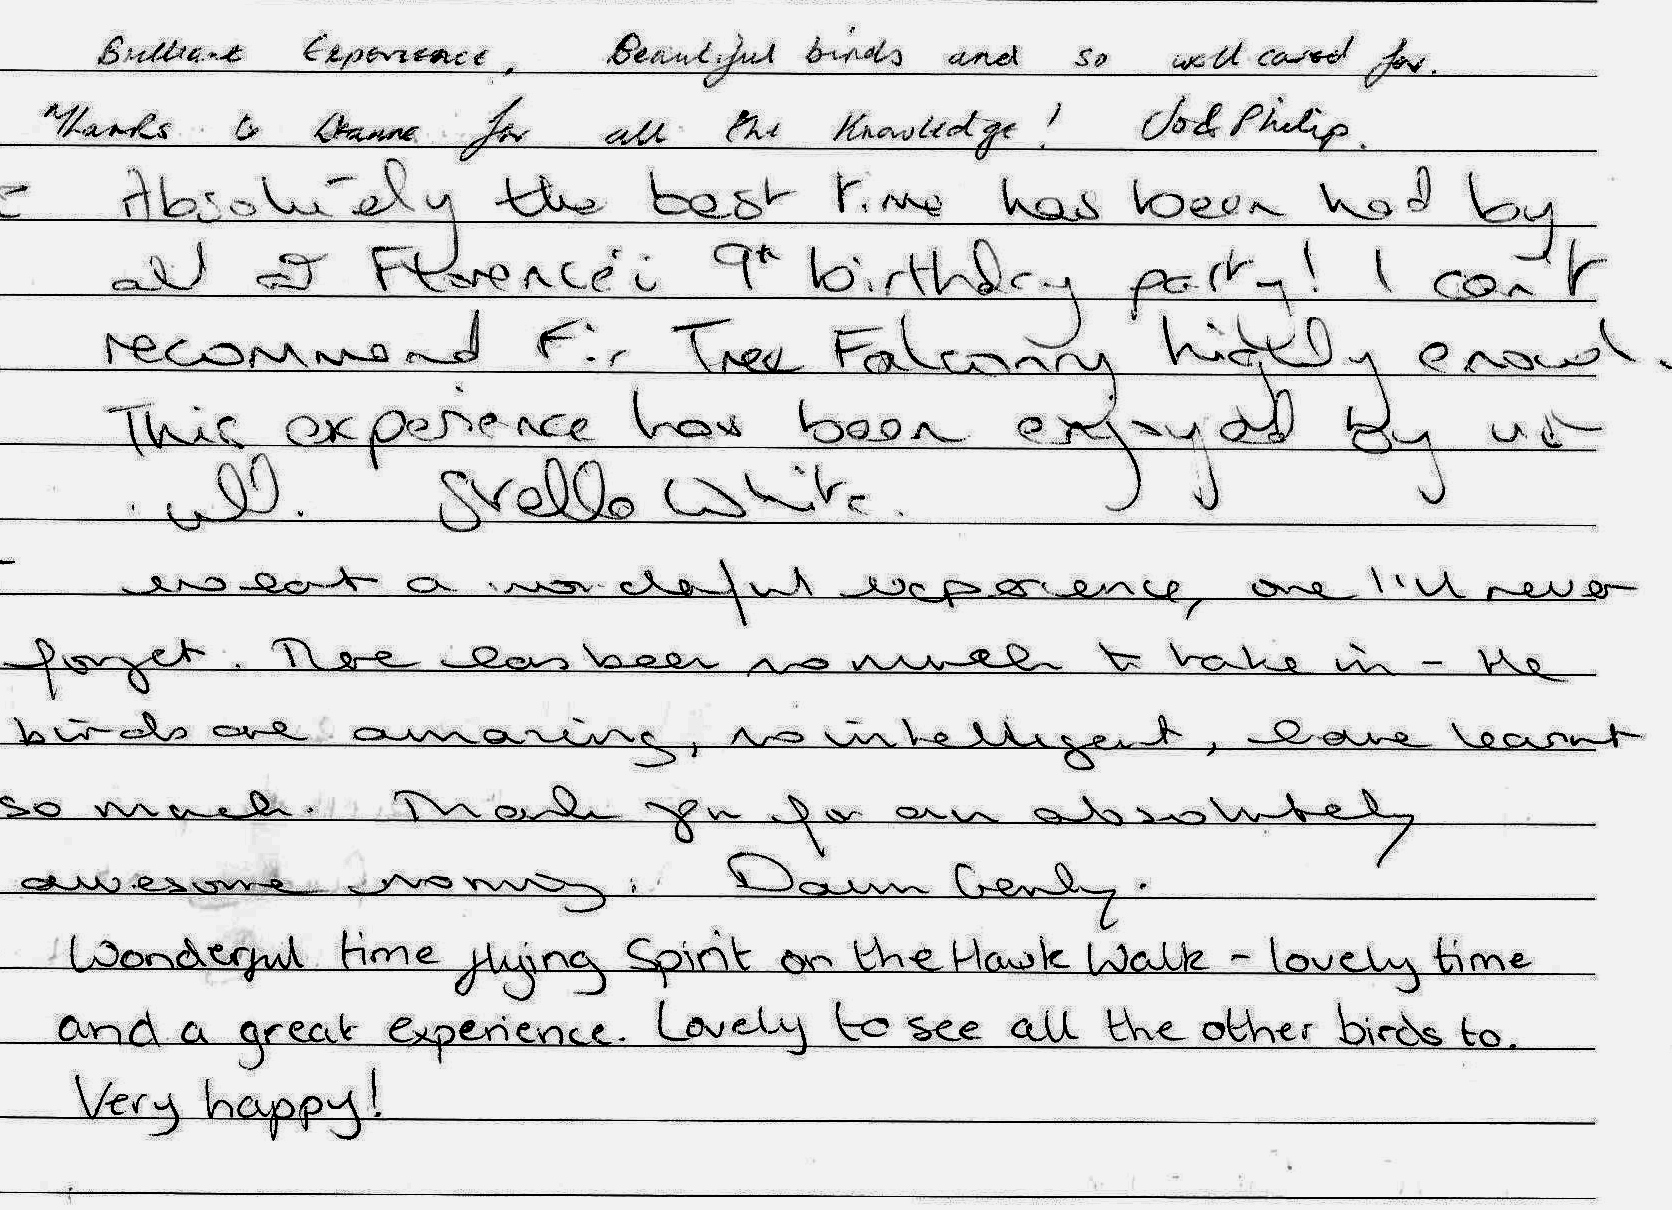 Brilliant Experience, Beautiful birds and so well cared for.
Thanks to Dianne for all the Knowledge! Jo & Philip.
Absolutely the best time has been had by
all at Florence's 9th birthday party! I can't
recommend Fir Tree Falconry highly enough.
This experience has been enjoyed by us
all. Stella White.
What a wonderful experience, one I'll never
forget. There has been so much to take in - the
birds are amazing, so intelligent, have learnt
so much. Thank you for an absolutely
awesome morning. Dawn
Wonderful time flying Spirit on the Hawk Walk - lovely time
and a great experience. Lovely to see all the other birds to.
Very happy!